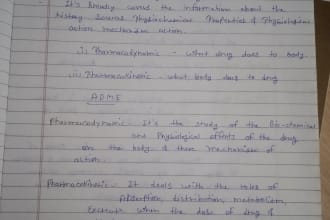 It's broadly covers the information about the
history Source Physiochemical Properties & Physiological
action mechanism action.
i) Pharmacodynamic - what drug does to body
ii) Pharmacokinetic - what body does to drug
ADME
Pharmacodynamic - It's the study of the Bio-chemical
and Physiological effects of the drug
on the body & there mechanism of
action.
Pharmacokinetic - It deals with the roles of
Absorption, distribution, metabolism,
when the dose of drug &